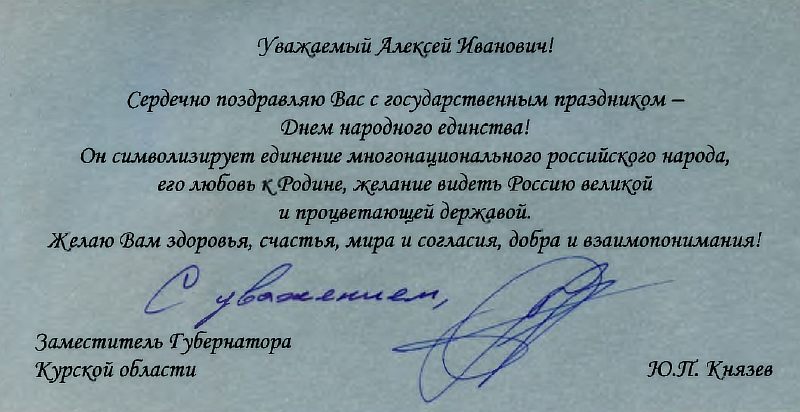 Уважаемый Алексей Иванович!
Сердечно поздравляю Вас с государственным праздником –
Днем народного единства!
Он символизирует единение многонационального российского народа,
его любовь к Родине, желание видеть Россию великой
и процветающей державой.
Желаю Вам здоровья, счастья, мира и согласия, добра и взаимопонимания!
С уважением,
Заместитель Губернатора
Курской области
Ю.П. Князев